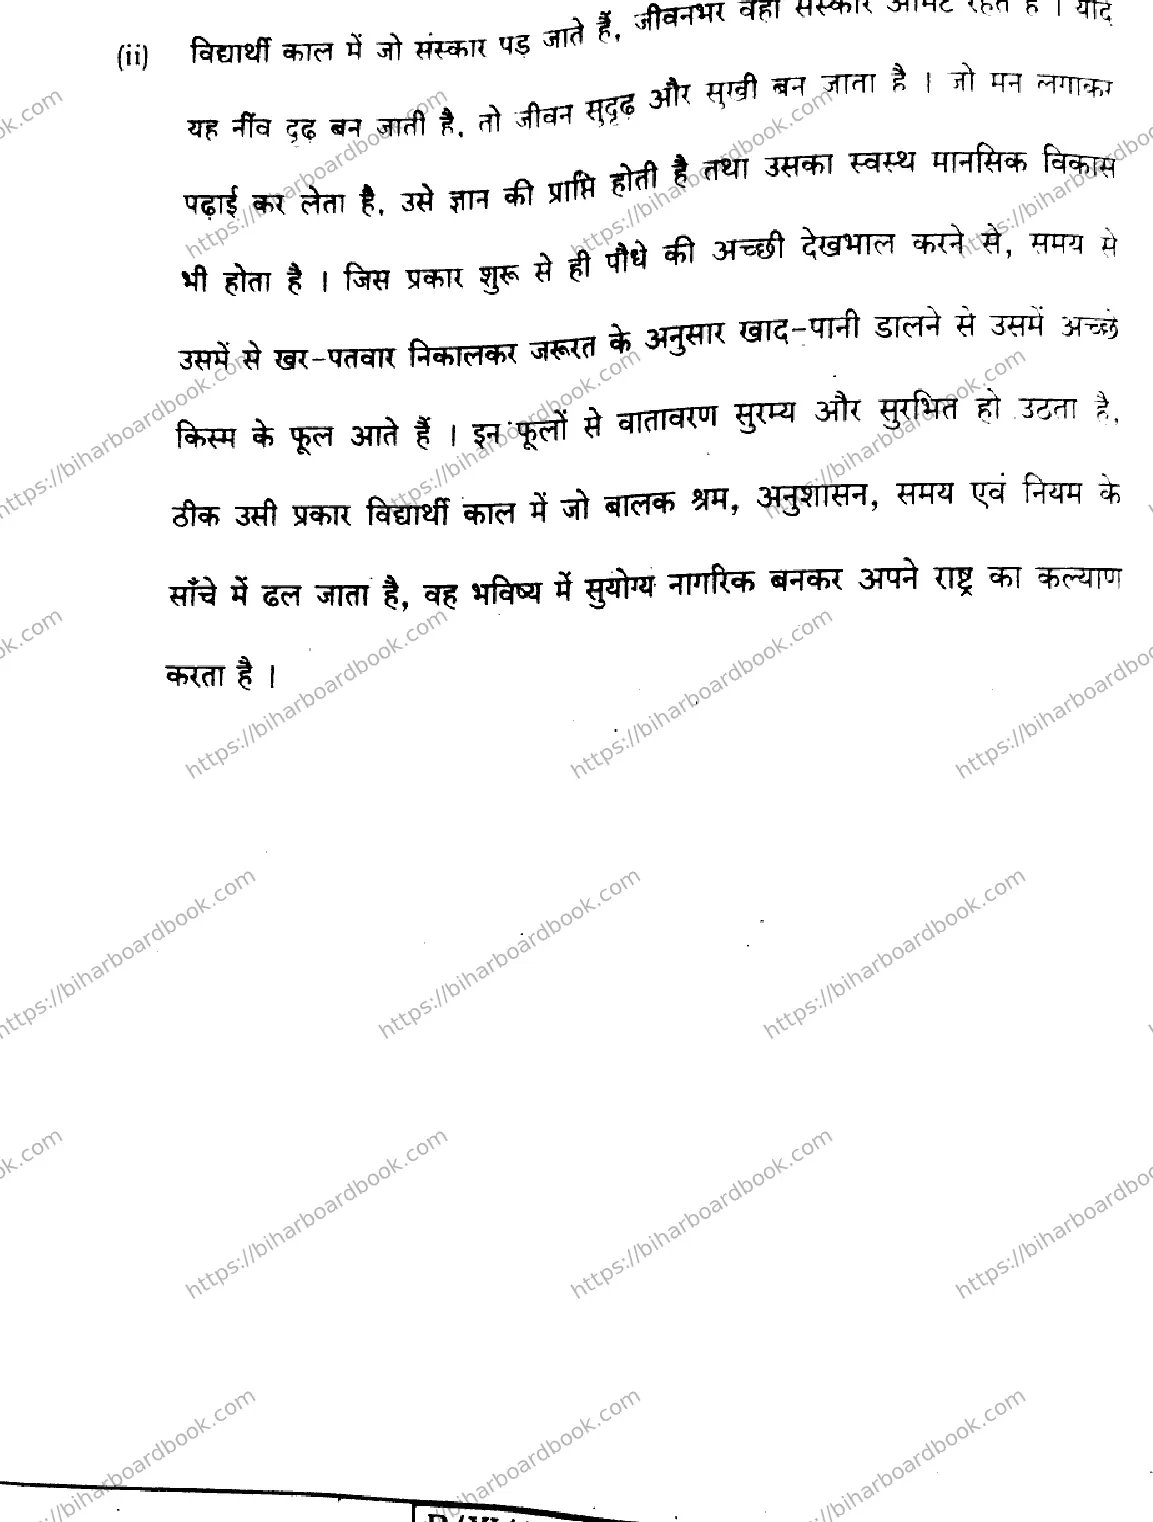 (ii) विद्यार्थी काल में जो संस्कार पड़ जाते हैं, जीवनभर वही संस्कार अमिट रहते हैं । यदि
यह नींव दृढ़ बन जाती है, तो जीवन सुदृढ़ और सुखी बन जाता है । जो मन लगाकर
पढ़ाई कर लेता है, उसे ज्ञान की प्राप्ति होती है तथा उसका स्वस्थ मानसिक विकास
भी होता है । जिस प्रकार शुरू से ही पौधे की अच्छी देखभाल करने से, समय से
उसमें से खर-पतवार निकालकर जरूरत के अनुसार खाद-पानी डालने से उसमें अच्छे
किस्म के फूल आते हैं । इन फूलों से वातावरण सुरम्य और सुरभित हो उठता है,
ठीक उसी प्रकार विद्यार्थी काल में जो बालक श्रम, अनुशासन, समय एवं नियम के
साँचे में ढल जाता है, वह भविष्य में सुयोग्य नागरिक बनकर अपने राष्ट्र का कल्याण
करता है ।
https://biharboardbook.com